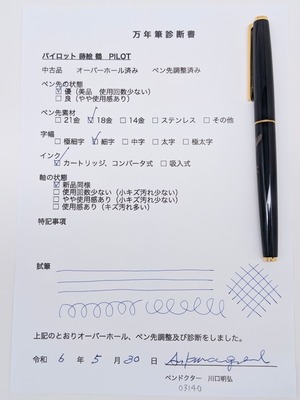 万年筆診断書
パイロット 蒔絵 鶴 PILOT
中古品 オーバーホール済み ペン先調整済み
ペン先の状態
☑ 優（美品 使用回数少ない）
□ 良（やや使用感あり）
ペン先素材
□ 21金 ☑ 18金 □ 14金 □ ステンレス □ その他
字幅
□ 極細字 ☑ 細字 □ 中字 □ 太字 □ 極太字
インク
☑ カートリッジ、コンバータ式 □ 吸入式
軸の状態
☑ 新品同様
□ 使用回数少ない（小キズ汚れ少ない）
□ やや使用感あり（小キズ汚れ少ない）
□ 使用感あり（キズ汚れ多い）
特記事項
試筆
上記のとおりオーバーホール、ペン先調整及び診断をしました。
令和 6 年 5 月 30 日
ペンドクター 川口明弘
03140